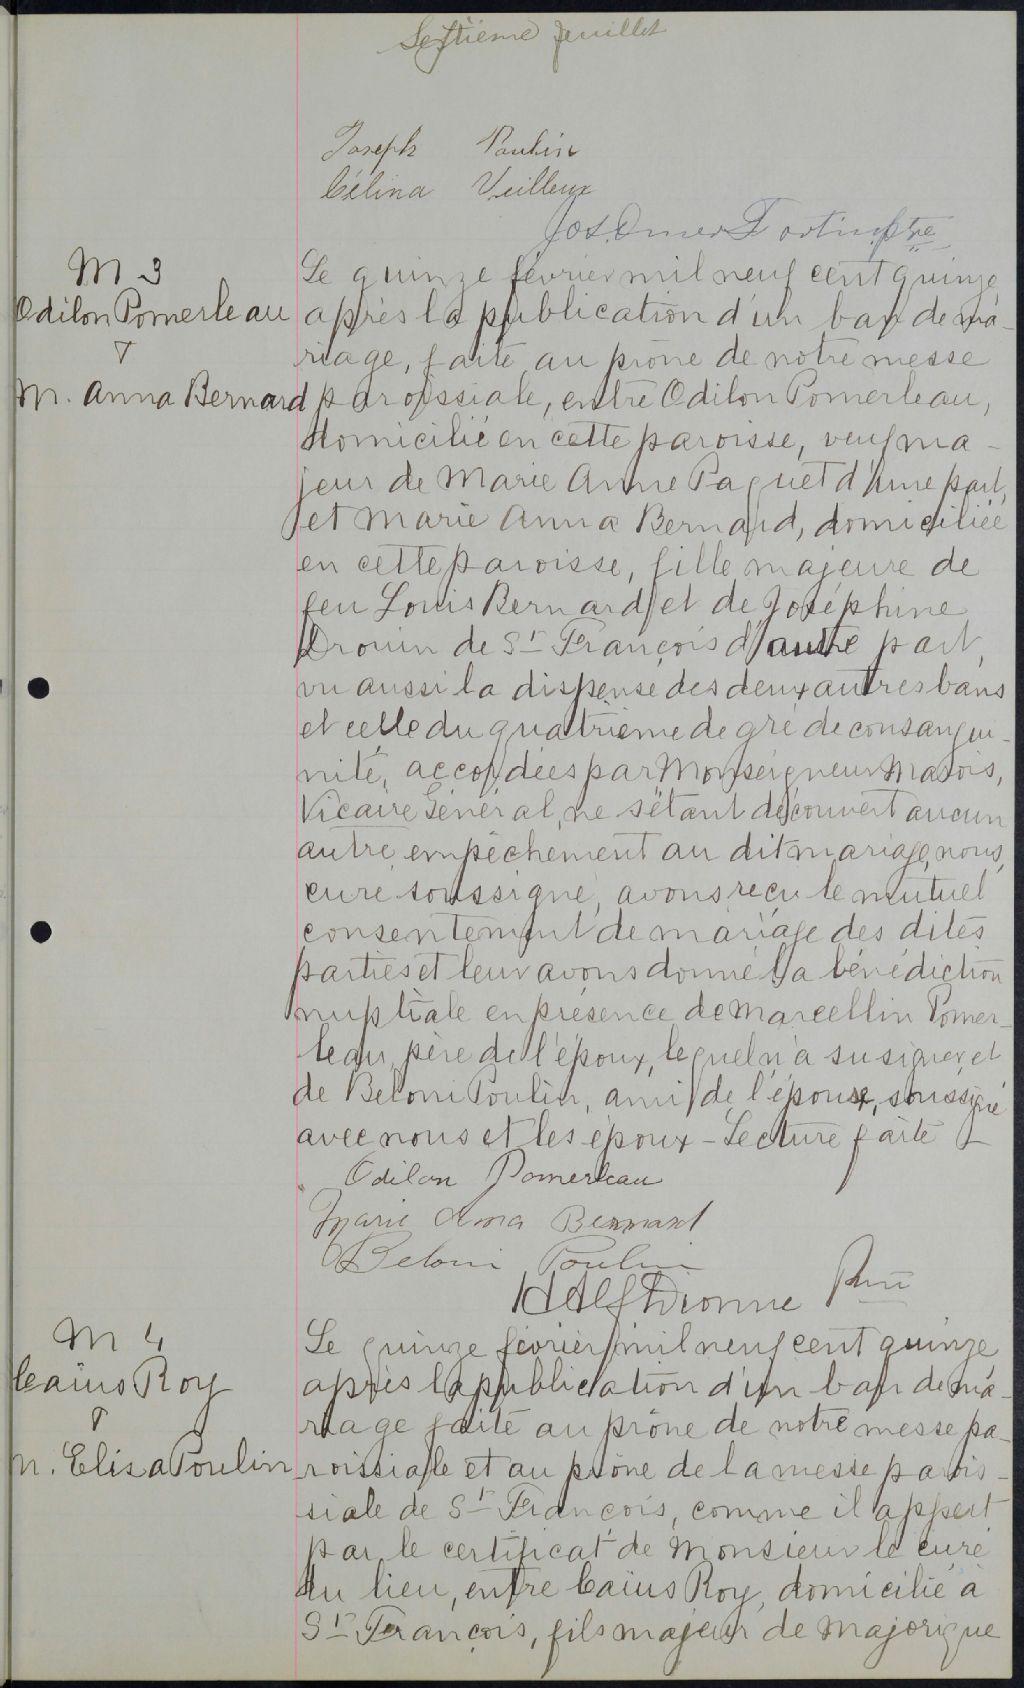 Septième feuillet
Joseph Poulin
Célina Veilleux
Jos. Omer Fortin ptre
M 3
Odilon Pomerleau
&
M. Anna Bernard
Le quinze février mil neuf cent quinze
après la publication d'un ban de ma-
riage, faite au prône de notre messe
paroissiale, entre Odilon Pomerleau,
domicilié en cette paroisse, veuf ma-
jeur de Marie Anne Paquet d'une part,
et Marie Anna Bernard, domiciliée
en cette paroisse, fille majeure de
feu Louis Bernard et de Joséphine
Drouin de St François d'autre part,
vu aussi la dispense des deux autres bans
et celle du quatrième degré de consangui-
nité, accordées par Monseigneur Marois,
Vicaire Général, ne s'étant découvert aucun
autre empêchement au dit mariage, nous,
curé soussigné, avons reçu le mutuel
consentement de mariage des dites
parties et leur avons donné la bénédiction
nuptiale en présence de Marcellin Pomer-
leau, père de l'époux, lequel n'a su signer et
de Beloni Poulin, ami de l'épouse, soussigné
avec nous et les époux - Lecture faite -
Odilon Pomerleau
Marie Anna Bernard
Beloni Poulin
H Alf Dionne Ptre
M 4
Caïus Roy
&
M. Elisa Poulin
Le quinze février mil neuf cent quinze
après la publication d'un ban de ma-
riage faite au prône de notre messe pa-
roissiale et au prône de la messe parois-
siale de St François, comme il appert
par le certificat de Monsieur le curé
du lieu, entre Caïus Roy, domicilié à
St François, fils majeur de Majorique